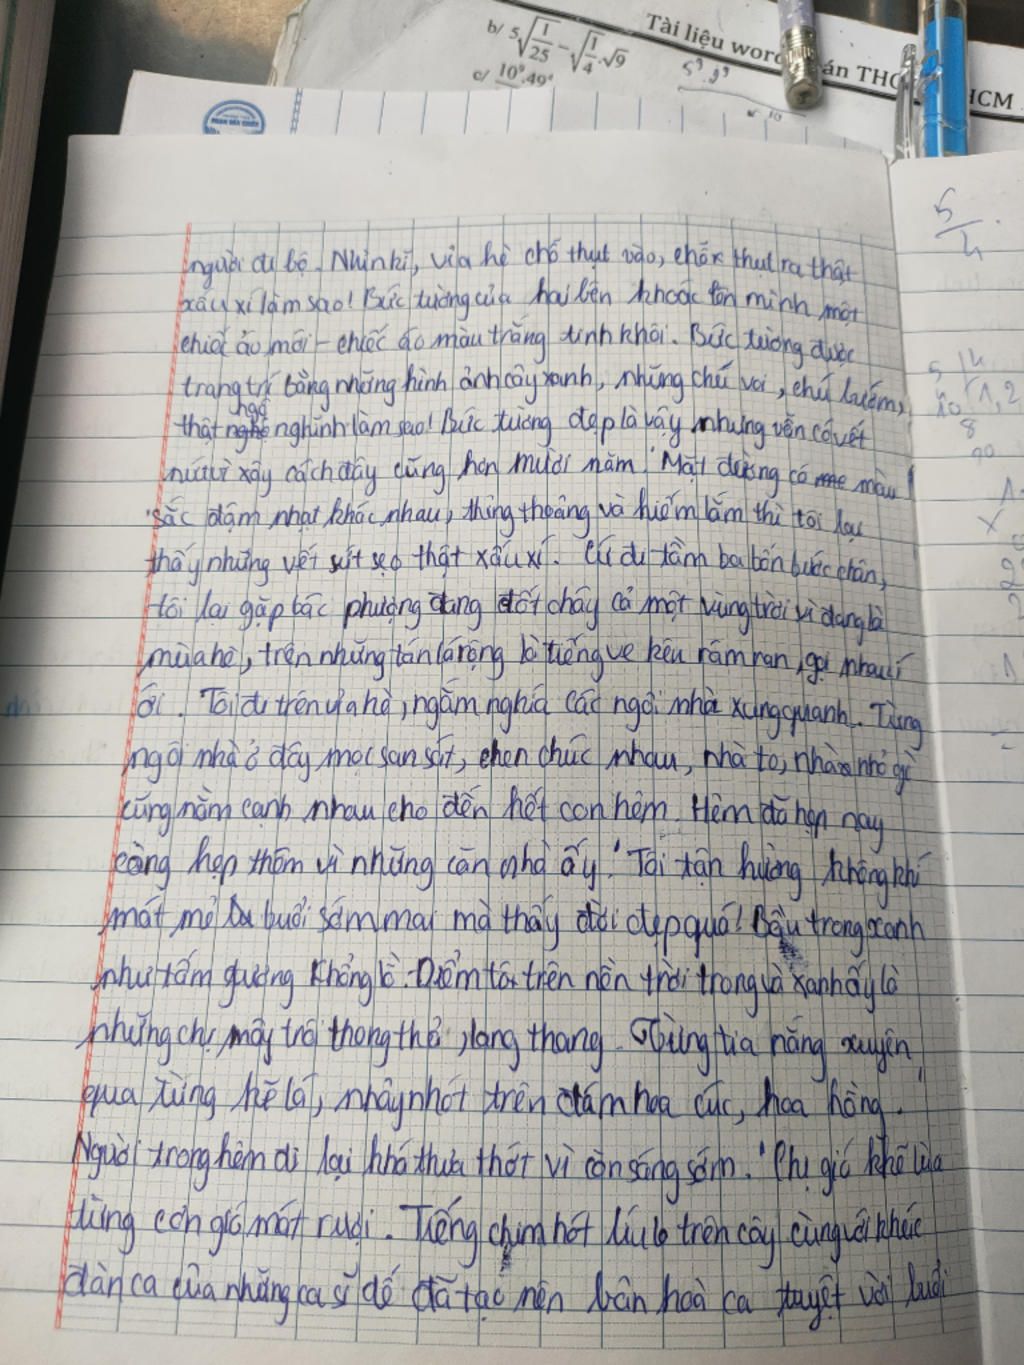 b/ 5√(1/25) − √(1/4) . √9
c/ 10⁹.49⁴
Tài liệu word
án THC
HCM
5⁹.9⁹
người đi bộ. Nhìn kĩ, vỉa hè chỗ thụt vào, chỗ thụt ra thật
xấu xí làm sao! Bức tường của hai bên khoác lên mình một
chiếc áo mới - chiếc áo màu trắng tinh khôi. Bức tường được
trang trí bằng những hình ảnh cây xanh, những chú voi, chú bướm,
thật ngộ nghĩnh làm sao! Bức tường đẹp là vậy nhưng vẫn có vết
nứt vì xây cách đây cũng hơn mười năm. Mặt đường có màu
sắc đậm nhạt khác nhau, thỉnh thoảng và hiếm lắm thì tôi lại
thấy những vết sứt sẹo thật xấu xí. Cứ đi tầm ba bốn bước chân,
tôi lại gặp bác phượng đang đốt cháy cả một vùng trời vì đang là
mùa hè, trên những tán lá rộng là tiếng ve kêu râm ran, gọi nhau í
ới. Tôi đi trên vỉa hè, ngắm nghía các ngôi nhà xung quanh. Từng
ngôi nhà ở đây mọc san sát, chen chúc nhau, nhà to, nhà nhỏ gì
cũng nằm cạnh nhau cho đến hết con hẻm. Hẻm đã hẹp nay
càng hẹp thêm vì những căn nhà ấy. Tôi tận hưởng không khí
mát mẻ buổi sớm mai mà thấy đời đẹp quá! Bầu trong xanh
như tấm gương khổng lồ. Điểm tô trên nền trời trong và xanh ấy là
những chị mây trôi thong thả, lang thang. Từng tia nắng xuyên
qua từng kẽ lá, nhảy nhót trên đám hoa cúc, hoa hồng.
Người trong hẻm đi lại khá thưa thớt vì còn sáng sớm. Chị gió khẽ lùa
từng cơn gió mát rượi. Tiếng chim hót líu lo trên cây cùng với khúc
đàn ca của những ca sĩ dế đã tạo nên bản hoà ca tuyệt vời buổi